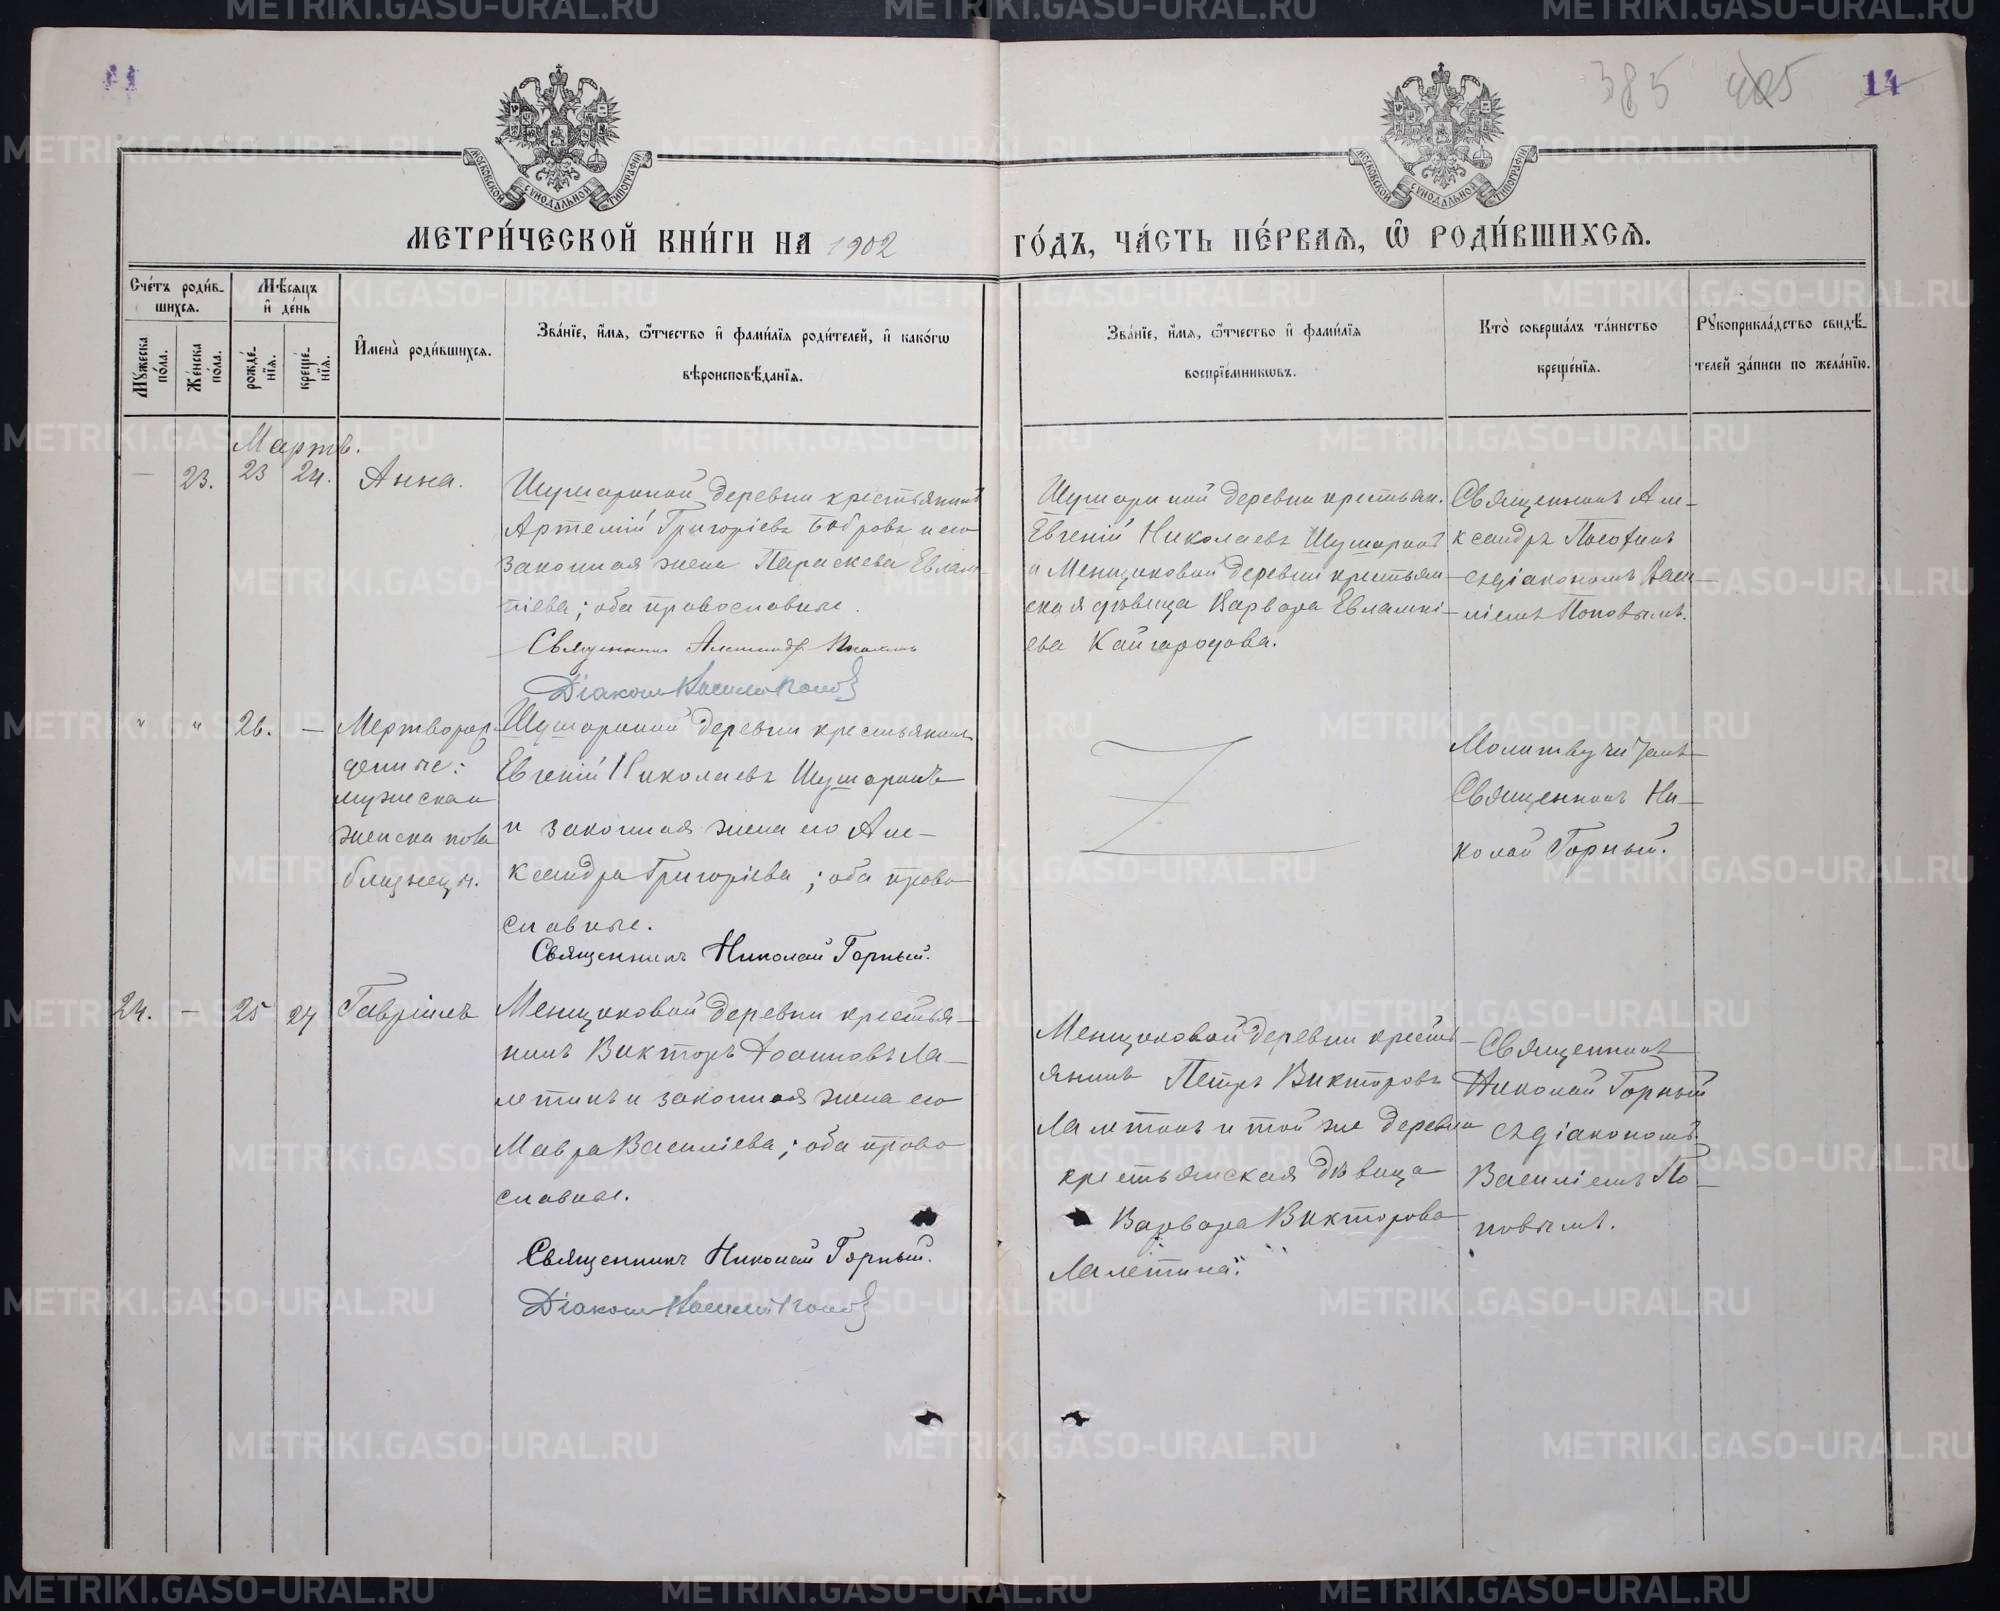 385 405 14
МОСКОВСКОЙ СУНОДАЛЬНОЙ ТИПОГРАФІИ
МОСКОВСКОЙ СУНОДАЛЬНОЙ ТИПОГРАФІИ
МЕТРИ́ЧЕСКОЙ КНИ́ГИ НА 1902
ГО́ДЪ, ЧА́СТЬ ПЕ́РВАѦ, Ѽ РОДИ́ВШИХСѦ.
Сче́тъ роди́в-
шихсѧ.
Мꙋ́жеска по́ла.
Же́нска по́ла.
Мѣ́сѧцъ
и҆ де́нь
рожде́-
нїѧ.
креще́-
нїѧ.
И҆мена̀ роди́вшихсѧ.
Зва́нїе, и҆́мѧ, ѻ҆́тчество и҆ фами́лїѧ роди́телей, и҆ како́гѡ
вѣроисповѣ́данїѧ.
Зва́нїе, и҆́мѧ, ѻ҆́тчество и҆ фами́лїѧ
воспрїе́мникѡвъ.
Кто̀ соверша́лъ та́инство
креще́нїѧ.
Рꙋкоприкла́дство свидѣ́-
телей за́писи по жела́нїю.
Мартъ.
— 23. 23 24. Анна.
Шушариной деревни крестьянинъ
Артемій Григоріевъ Бобровъ и его
законная жена Параскева Евлам-
піева; оба православные.
Священникъ Александръ
Діаконъ Василій Поповъ
Шушариной деревни крестьян.
Евгеній Николаевъ Шушаринъ
и Менщиковой деревни крестьян-
ская дѣвица Варвара Евлампі-
ева Кайгородова.
Священникъ Але-
ксандръ
съ діакономъ Васи-
ліемъ Поповымъ.
" " 26. — Мертворож-
денные:
мужеска и
женска пола
близнецы.
Шушариной деревни крестьянинъ
Евгеній Николаевъ Шушаринъ
и законная жена его Але-
ксандра Григоріева; оба право-
славные.
Священникъ Николай Горный.
Молитву читалъ
Священникъ Ни-
колай Горный.
24. — 25 27 Гавріилъ
Менщиковой деревни крестья-
нинъ Викторъ Іоанновъ Ла-
летинъ и законная жена его
Мавра Василіева; оба право-
славные.
Священникъ Николай Горный.
Діаконъ Василій Поповъ
Менщиковой деревни кресть-
янинъ Петръ Викторовъ
Лалетинъ и той же деревни
крестьянская дѣвица
Варвара Викторова
Лалетина.
Священникъ
Николай Горный
съ діакономъ
Василіемъ По-
повымъ.
METRIKI.GASO-URAL.RU